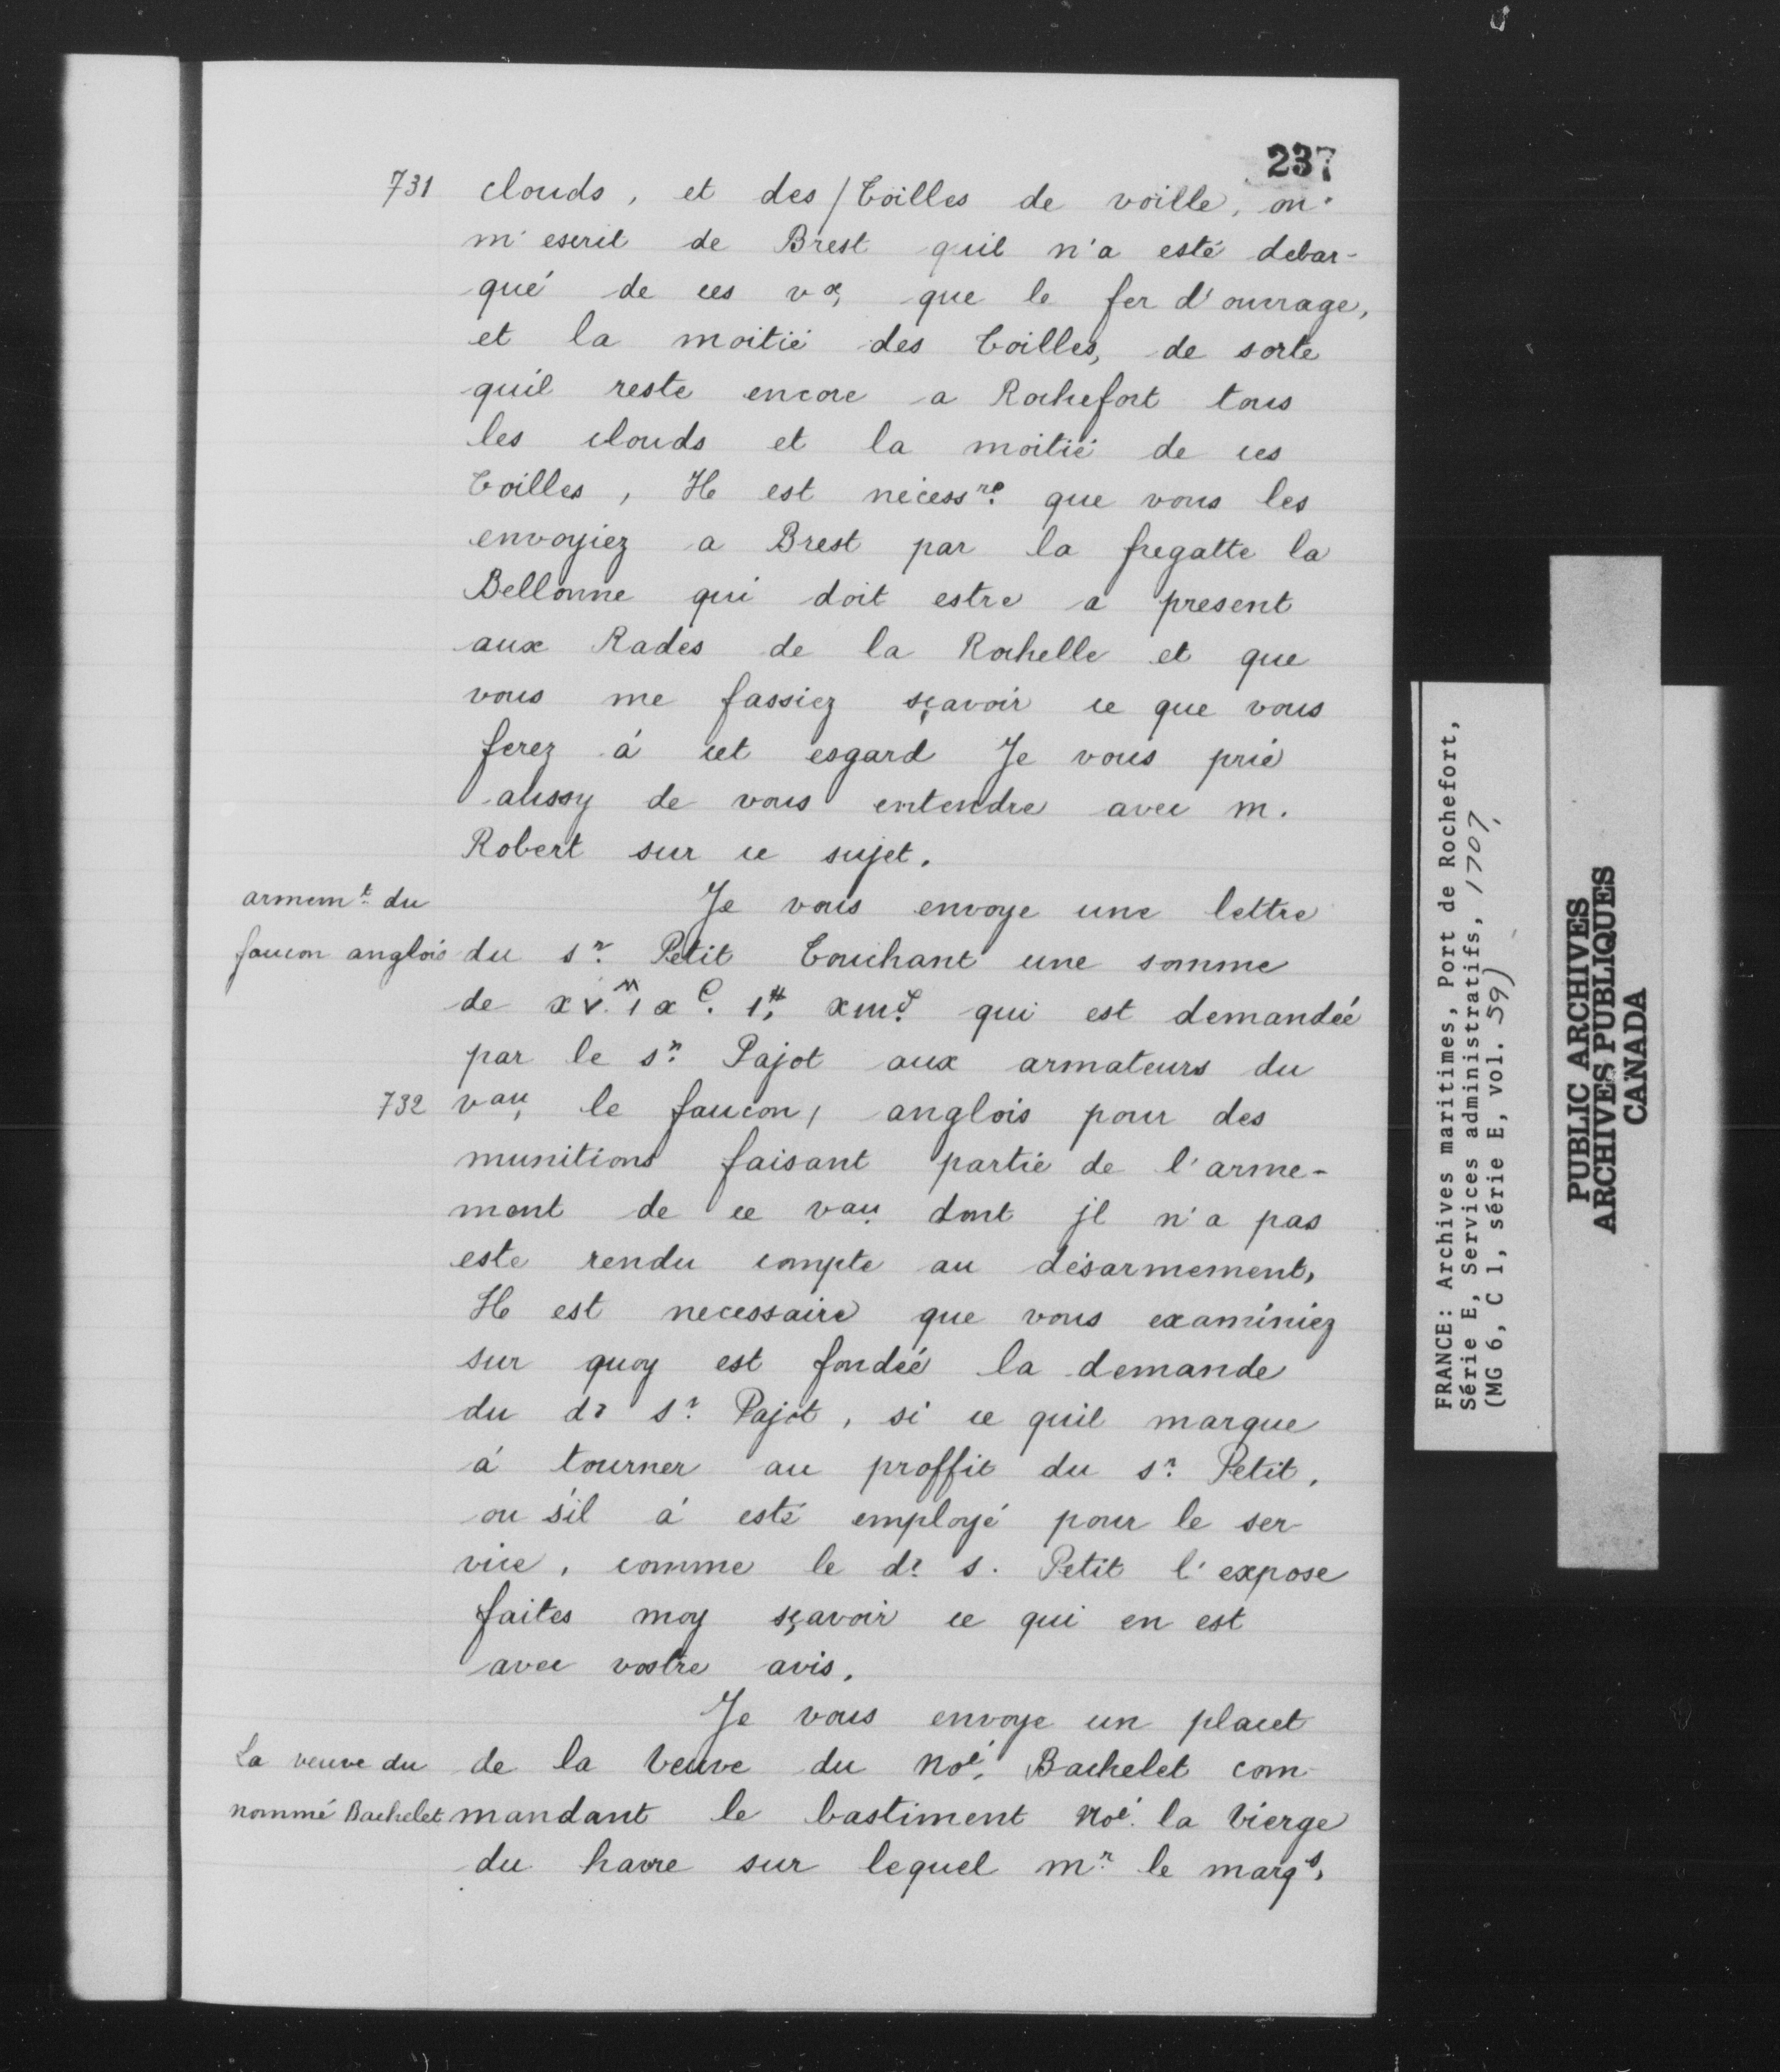 237
731 clouds, et des / toilles de voille, on
m'escrit de Brest quil n'a esté debar-
qué de ces vx, que le fer d'ouvrage,
et la moitié des toilles, de sorte
quil reste encore a Rochefort tous
les clouds et la moitié de ces
toilles, Il est nécessre que vous les
envoyiez a Brest par la fregatte la
Bellonne qui doit estre a present
aux Rades de la Rochelle et que
vous me fassiez sçavoir ce que vous
ferez á cet esgard Je vous prie
aussy de vous entendre avec m.
Robert sur ce sujet.
armemt. du
faucon anglois
Je vous envoye une lettre
du sr. Petit touchant une somme
de qui est demandée
par le sr. Pajot aux armateurs du
732 vau, le faucon, anglois pour des
munitions faisant partie de l'arme-
ment de ce vau dont jl n'a pas
este rendu compte au désarmement,
Il est necessaire que vous examiniez
sur quoy est fondée la demande
du dt sr. Pajot, si ce quil marque
á tourner au proffit du sr. Petit,
ou s'il á esté employé pour le ser-
vice, comme le dt. s. Petit l'expose
faites moy sçavoir ce qui en est
avec vostre avis.
Je vous envoye un placet
La veuve du
nommé Bachelet
de la veuve du noé, Bachelet com-
mandant le bastiment noé. la Vierge
du havre sur lequel mr. le marqs,
FRANCE: Archives maritimes, Port de Rochefort,
Série E, Services administratifs, 1707,
(MG 6, C 1, série E, vol. 59)
PUBLIC ARCHIVES
ARCHIVES PUBLIQUES
CANADA